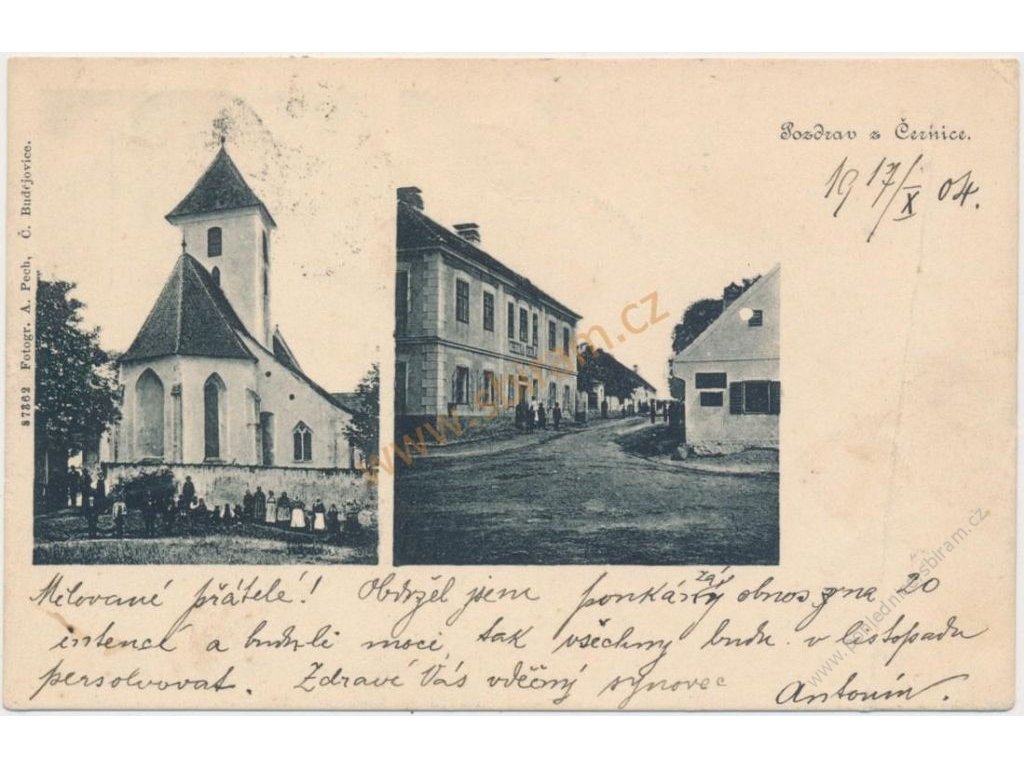 Pozdrav z Černice.
19 17/X 04.
87362 Fotogr. A. Pech, Č. Budějovice.
www.sbiram.cz
Milované přátelé! Obdržel jsem obnos na 20
intencí a budu-li moci, tak všechny budu v listopadu
persolvovat. Zdraví Vás vděčný synovec Antonín.
www.pohlednice-sbiram.cz